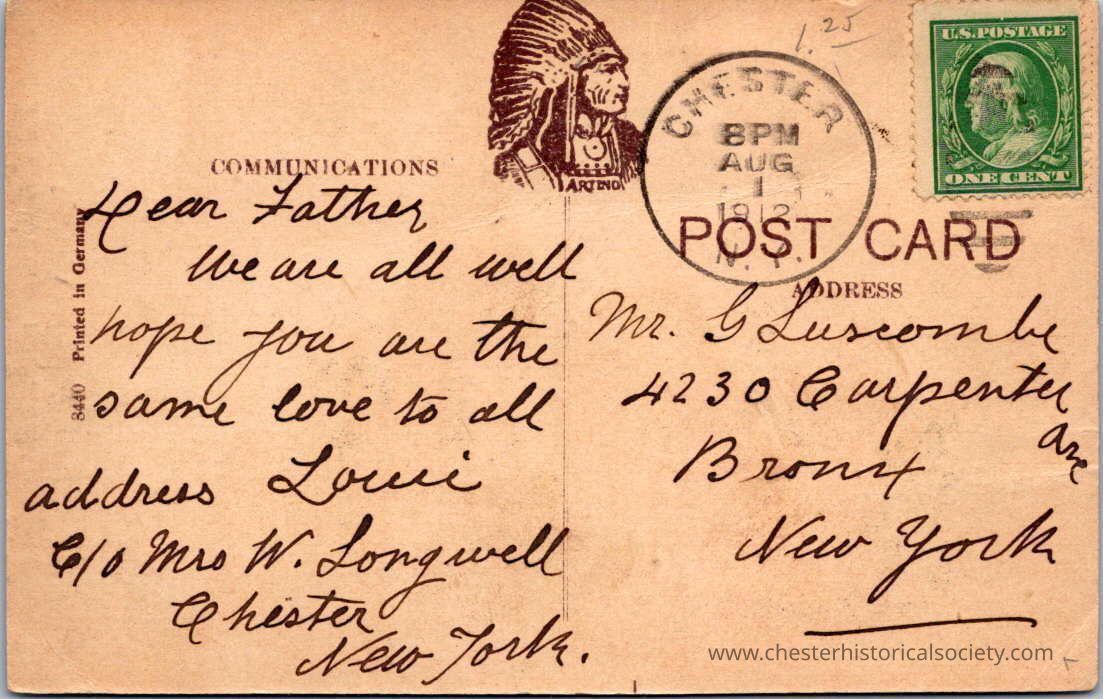 1.25
U.S. POSTAGE
ONE CENT
CHESTER
8 PM
AUG
1
1912
N.Y.
ARTINO
COMMUNICATIONS
POST CARD
ADDRESS
8440 Printed in Germany
Dear Father
We are all well
hope you are the
same love to all
Louie
address
C/o Mrs W. Longwell
Chester
New York.
Mr. G Luscombe
4230 Carpenter
Ave
Bronx
New York
www.chesterhistoricalsociety.com